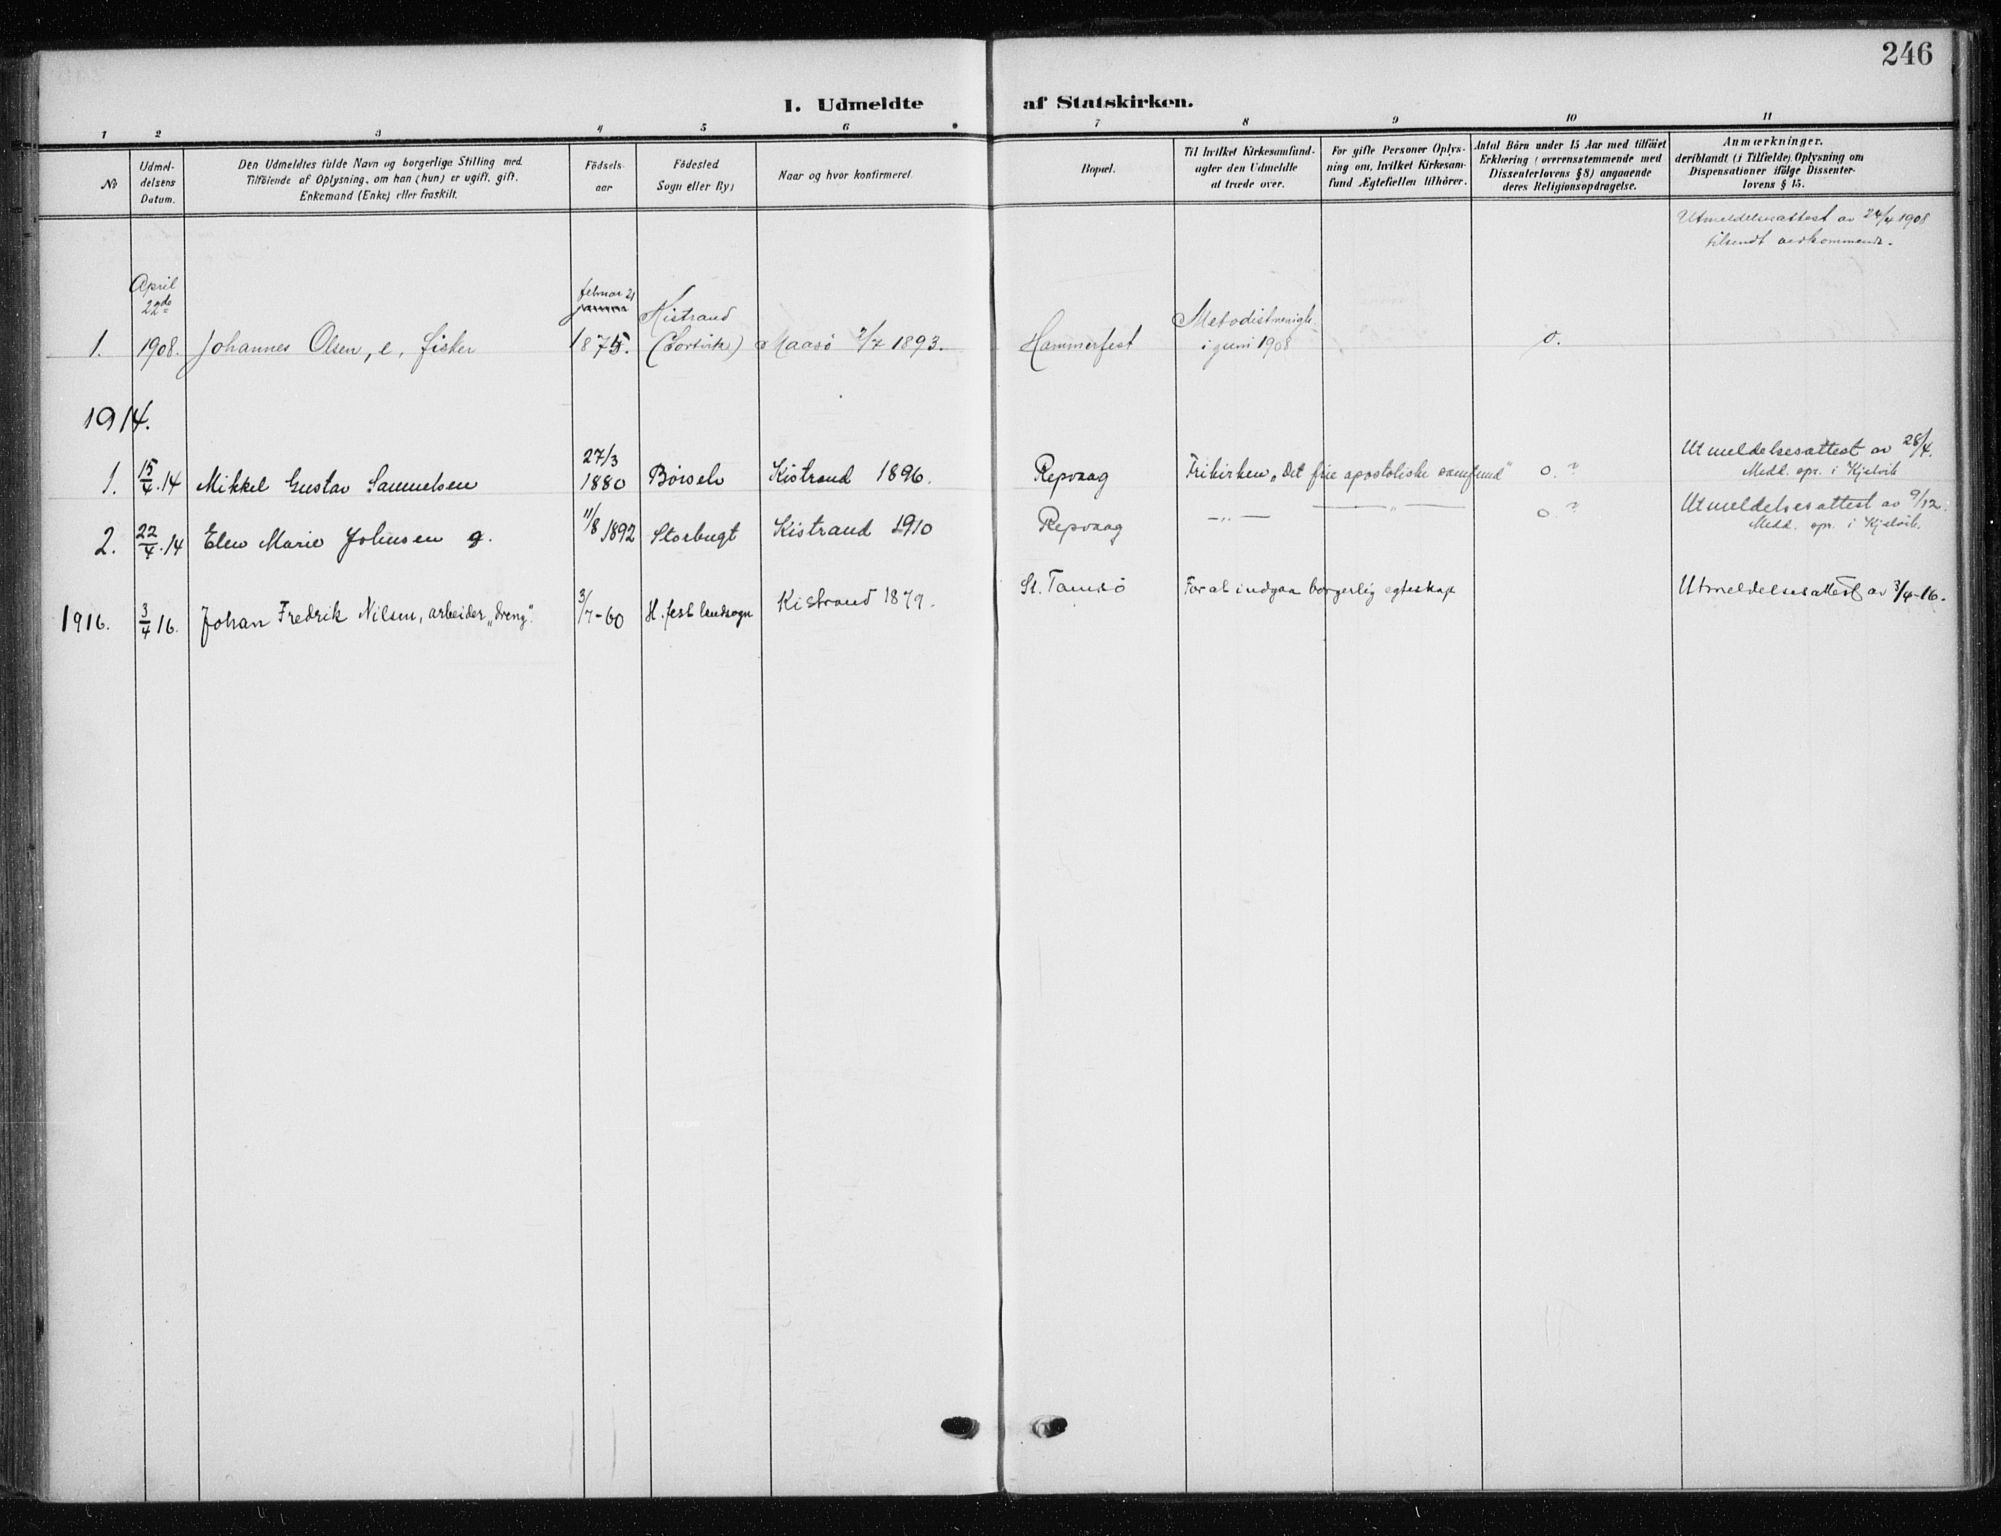 246
I. Udmeldte af Statskirken.
1 2 3 4 5 6 7 8 9 10 11
No
Udmel-
delsens
Datum.
Den Udmeldtes fulde Navn og borgerlige Stilling med
Tilföiende af Oplysning, om han (hun) er ugift, gift,
Enkemand (Enke) eller fraskilt.
Födsels-
aar
Födested
Sogn eller By)
Naar og hvor konfirmeret.
Bopæl.
Til hvilket Kirkesamfund
agter den Udmeldte
at træde over.
For gifte Personer Oplys-
ning om, hvilket Kirkesam-
fund Ægtefællen tilhörer.
Antal Börn under 15 Aar med tilföiet
Erklæring (overensstemmende med
Dissenterlovens § 8) angaaende
deres Religionsopdragelse.
Anmærkninger.
deriblandt (i Tilfælde) Oplysning om
Dispensationer ifölge Dissenter-
lovens § 15.
Utmeldelsesattest av 24/4 1908
tilsendt vedkommende.
April
22de
februar 21
januar
Kistrand
Metodistmenigh.
1. 1908. Johannes Olsen, e, fisker 1875. (Lortvik) Maasö 2/7 1893. Hammerfest i juni 1908 0.
1914.
1. 15/4.14 Mikkel Gustav Samuelsen 27/3 1880 Börselv Kistrand 1896. Repvaag Frikirken „Det frie apostoliske samfund" 0. ? Utmeldelsesattest av 28/4.
Medd. spr. i Kjelvik
2. 22/4.14 Elen Marie Johnsen g. 11/8 1892 Storbugt Kistrand 1910 Repvaag —„— —„— 0 ? Utmeldelsesattest av 9/12.
Medd. spr. i Kjelvik.
1916. 3/4 16. Johan Fredrik Nilsen, arbeider „dreng". 3/7-60 H.fest landsogn Kistrand 1879. St. Tamsö For at indgaa borgerlig egteskap Utmeldelsesattest av 3/4-16.